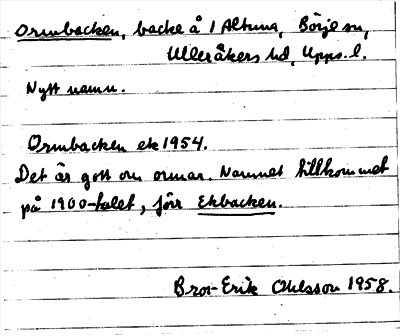 Ormbacken, backe å 1 Altuna, Börje sn,
Ulleråkers hd, Upps.l.
Nytt namn.
Ormbacken ek 1954.
Det är gott om ormar. Namnet tillkommet
på 1900-talet, förr Ekbacken.
Bror-Erik Ohlsson 1958.